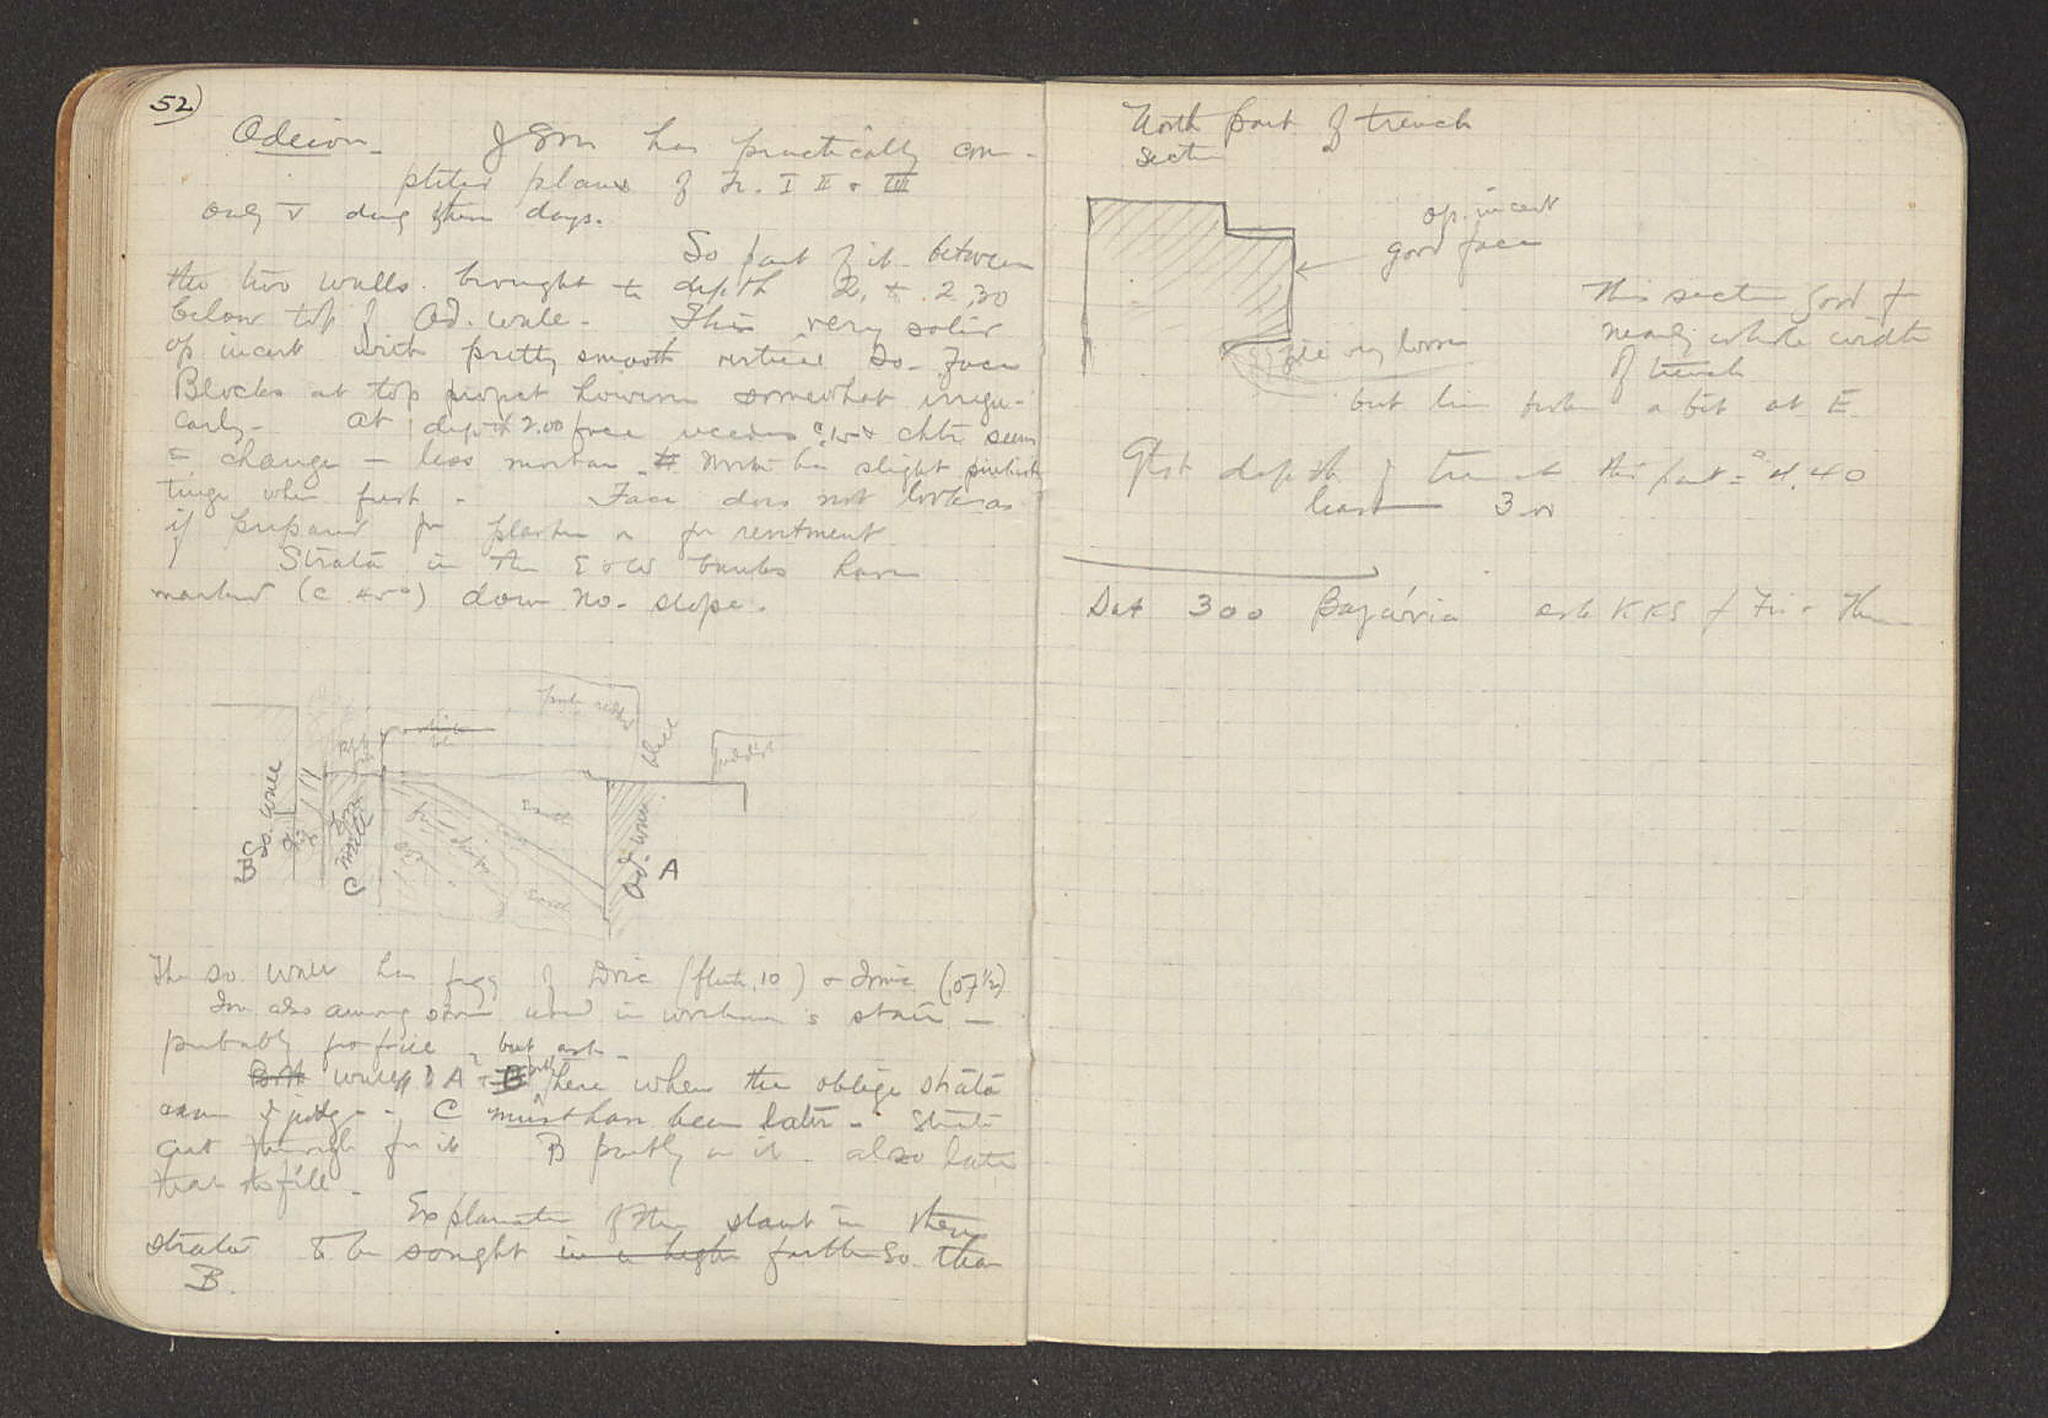 52)
Odeion - has practically com-
pleted plans of Tr. I II & III
only V dug these days.
So part of it between
the two walls brought to depth 2. + 2.30
below top of Od. wall - This very solid
op incert with pretty smooth vertical So. face
Blocks at top project however somewhat irregu-
larly - At depth 2.00 face recedes & chtr seems
to change - less mortar - Mortar has slight pinkish
tinge when fresh - Face does not look as
if prepared for plaster or for revetment
Strata in the E & W banks have
marked (c 45°) down no. slope.
So. wall
B
C
Earth
Earth
Od. wall
A
The so. wall has fragg of Doric (flute .10) & Ionic (.07 1/2)
also among stone used in workmen's stair -
probably fro fill, but ask -
Both walls A + B here when the oblige strata
C must have been later - Strata
cut through for it B partly on it also later
that to fill -
Explanation of the slant in these
strata to be sought in a higher farther So. than
B.
North part of trench
section
op. incert
good face
fill very loose
This section good for
nearly whole width
of trench
but broken a bit at E
Gtst depth of tr at this part = 4.40
least 3.00
Sat 300 ask KKS